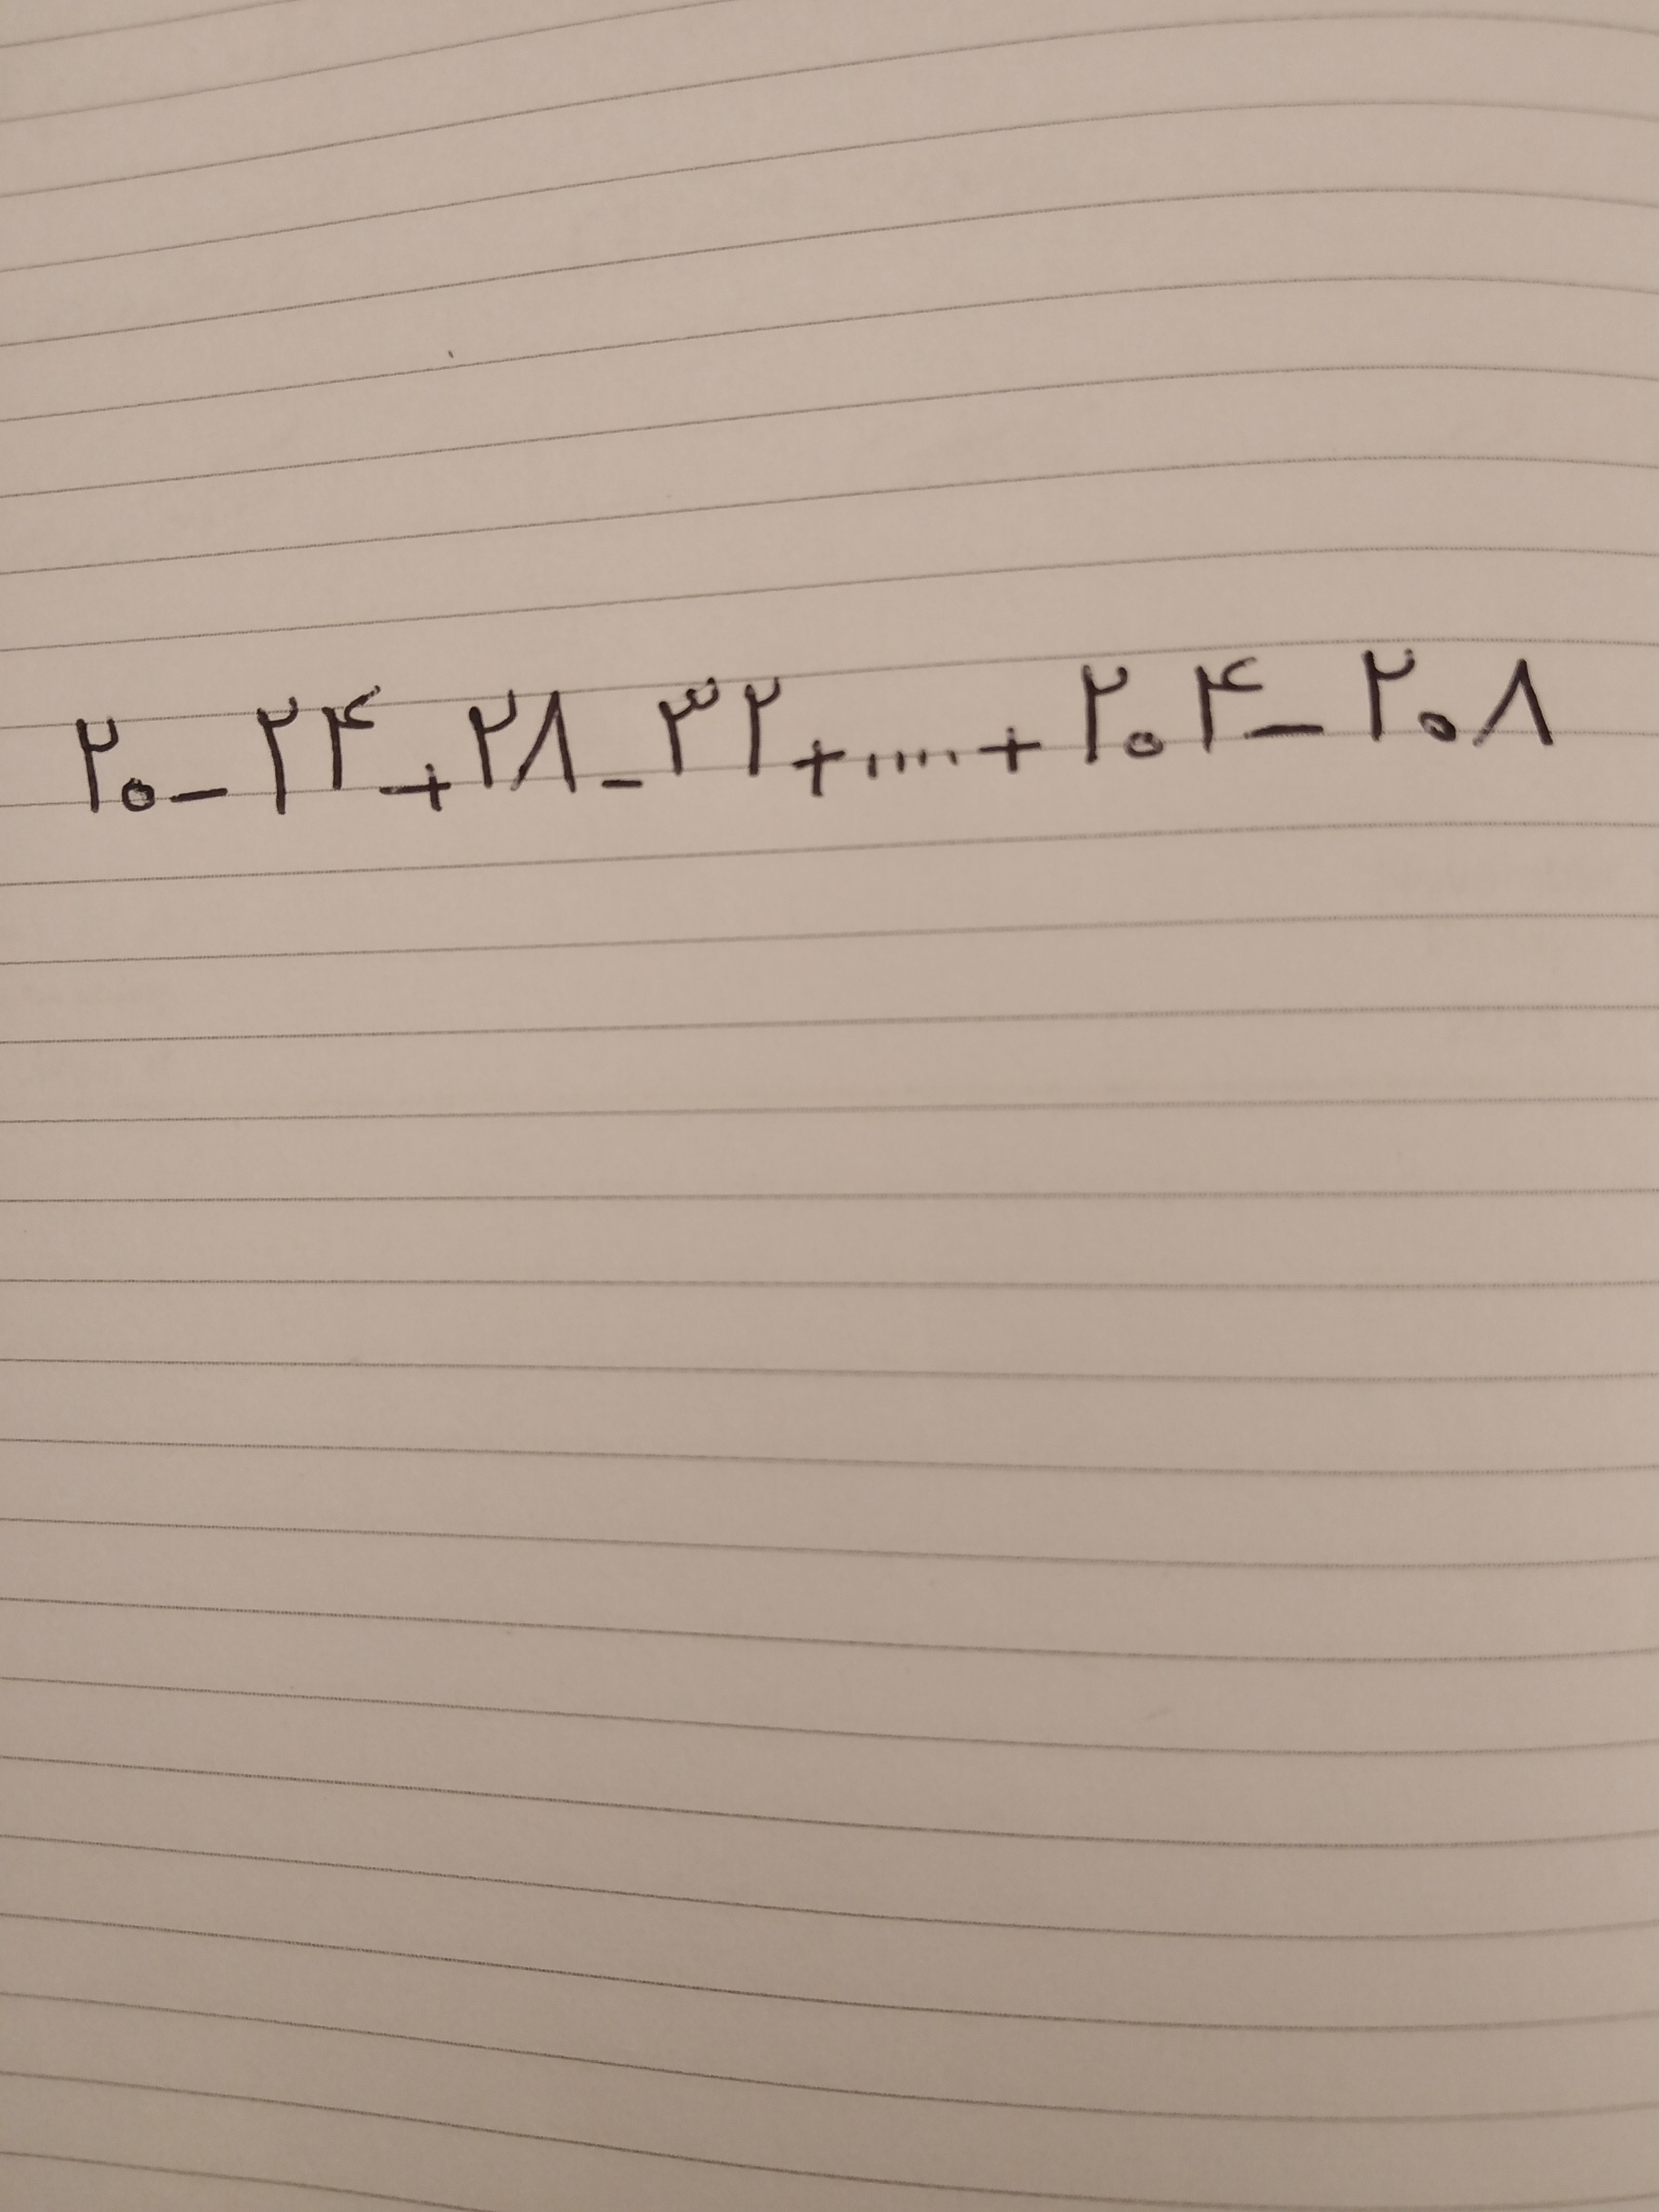 ۲۰-۲۴+۲۸-۳۲+.....+۲۰۴-۲۰۸